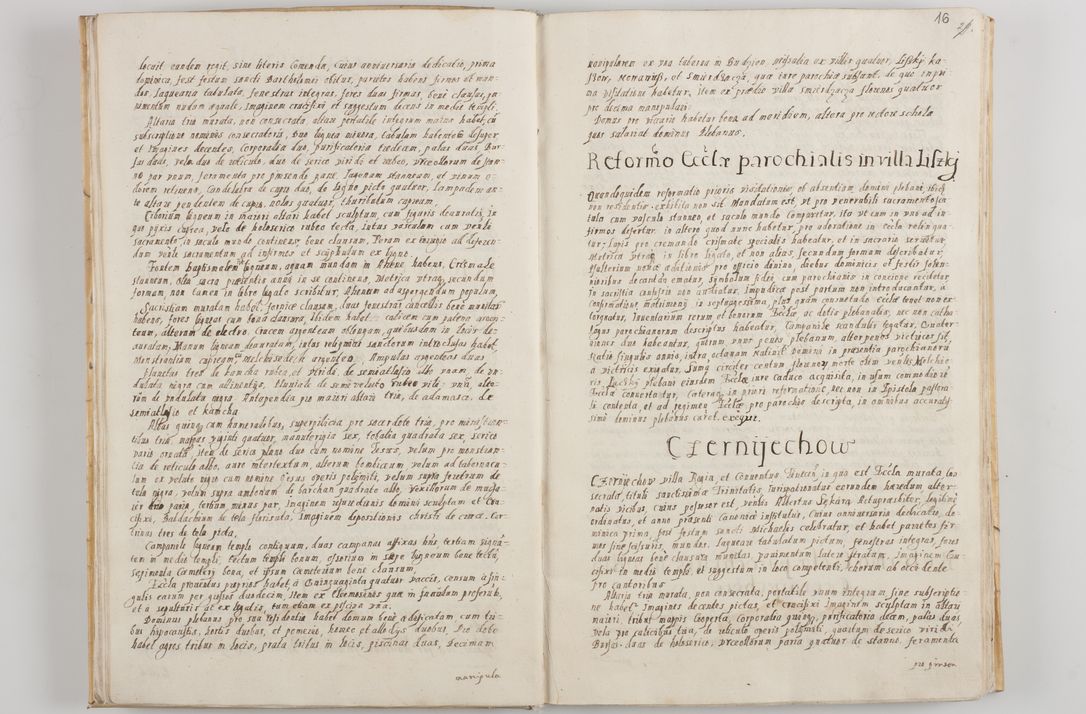 locuit eundem regit, sine literis Comenda, cuius anniversaria dedicatio, prima
dominica, post festum sancti Bartholomei obitus, parietes habens firmos et mun-
dos, laquearia tabulata, fenestras integras, fores duas firmas, bene clausas, pa-
vimentum nudum aequale, Imaginem crucifixi et suggestum decens in medio templi.
Altaria tria murata, non consecrata altare portatile integrum maius habet,
subscriptione nominis consecratoris, duo lignea minora, tabulam habentem desuper
et Imagines decentes, Corporalia duo, purificatoria tredecim, palas duas, Bur-
sas duas, vela duo de reticulo, duo de serico viridi et rubeo, vexillorum de
no par unum, feramenta pro prensendo pane, lagenam stanneam, et vinum o-
dorem retinens, Candelabra de cupro duo, de ligno picto quatuor, lampadem an-
te altare pendentem de cupro, nolas quatuor, thuribulum cupreum.
Ciborium ligneum in maiori altari habet sculptum, cum figuris deauratis, in
quo pyxis cuprea, velo de holoserico rubeo tecta, intus vasculum cum venli
sacramento in saculo mundo continens, bene clausum, Peram ex ad deferen-
dum venle sacramentum ad infirmos et sciphulum ex ligno.
Fontem baptismalem ligneum, aquam mundam in Aheno habens, Crismale
stanneum, olea sacra praesentis anni in se continens, Metrica utraq, secundum
formam, non tamen in libro ligate scribitur, Ahenum ad aspergendum populum,
Sacristiam muratam habet, fornice clausam, duas fenestras cancellis bene munitas
habens, fores ligneas cum bona clausura, ibidem habet calicem cum patena argen-
teum, alterum de electro, Crucem argenteam oblongam, quibusdam in locis de-
auratam, Manum ligneam deauratam, intus reliquias sanctorum inclusas habet,
Monstrantiam cupream cum melchisedech argenteo, Ampulas argenteas duas
planetas tres de kamcha rubea, et viridi, de semiatlassio albo unam, de un-
dulata nigra cum alimentijs, thunicale de semiveluto rubeo vile unum, alte-
rum de undulata nigra. Antependia pro maiori altari tria, de adamasco, de
semiatlassio et kamcha
Albas quinq cum humeralibus, superpelicia pro sacerdote tria, pro ministran-
tibus tria, mappas viginti quatuor, manutergia sex, tobalia quadrata sex, serico
varis ornata, item de serico plano duo cum nomine Jesus, velum pro monstran-
tia de reticulo albo, auro intertextum, alterum bombicem, velum ad tabernacu-
lum ex velato nigro cum nomine Jesus operis polymiti, velum supra feretrum de
tela nigra, velum supra ambonam de barchan quadrato albo, vexillorum de mucha-
ier tria paria, tertium minus par, Imaginem resurectionis domini sculptam et Cru-
cifixi, Baldachinum de tela florisata, Imaginem depositionis christi de cruce, Cor-
tinas tres de tela picta,
Campanile ligneum templo contiguum, duas campanas affixas bene tertiam signa-
tem in medio templi, tectum templi bonum ossorium in sepe ligneum bene tectum,
septimenta Cemeterij bona, et ipsum Cemeterium bene clausum,
Eccla proventus proprios habet a Quinquaginta quatuor vaccis, censum a sin-
gulis earum per grossos duodecim, item ex Eleemosinis quae in scutulum proferunt,
et a sepulturis ac ex legatis, tum etiam ex piscina una.
Dominus plebanus pro sua residentia habet domum bene aedificatam cum tri-
bus hipocaustis, hortis duobus, et pomerio, horreo et allodys duobus, Pro dote
habet agros tribus in locis, prata tribus in locis, piscinas duas, decimam
manipula
16
manipularem ex pro taberna in Budzijon missalia ex villis quatuor, Lissky Ka-
szow, Mornawijss, et Smierdzaczja, quae iure parochiae subsunt, de quo in pri-
ma Visitatione habetur, item ex praedio villa smierdzacza florenos quatuor
pro decima manipulari
Domus pro vicario habetur bona ad meridiem, altera pro rectore scholae
quos salariat dominus plebanus.
Reformo Ecclae parochialis in villa Liszkj
Quandoquidem reformatio prioris visitationis, ob absentiam domini plebani, ibidem
non residentis, exhibita non sit. Mandatum est, ut pro venerabili sacramento sca-
tula cum vasculo stanneo, et saculo mundo Comparetur, ita ut cum in uno ad in-
firmos defertur, in altero quod nunc habetur, pro adoratione in eccla relinqua-
tur, lapis pro cremando crismate specialis habeatur, et in sacrario servetur,
Metrica utraq in libro ligato, et non alias, secundum formam describatur,
Psalterium nonae additionis pro officio divino, diebus dominicis et festis solen-
nioribus decantandum ematur, Symbolum fidei, cum parochianis in concione recitetur,
In sacristia confessio non audiatur, Impudicae post partum non introducantur, a
Confirmatione, Matrimonij in septuagessima, plus quam consuetudo Ecclae tenet non ex-
torqueatur, Inventarium rerum et bonorum Ecclae ac dotis plebanalis, nec non catha-
logus parochianorum descriptus habeatur, Campanile scandulis tegatur, Quater-
niones duo habeantur, quorum unus penes plebanum, alter penes vitricos sit,
Ratio singulis annis, intra octavam nativit. Domini in praesentia parochianoru
a vitricis exigatur, Summa circiter centum florenorum morte olim venlis Melchio-
ris plebani eiusdem Ecclae iure caduco acquisita, in usum commodiore
Ecclae convertatur, Caeteraq, in priori reformatione, nec non in Epistola pastora-
li contenta, et ad regimen Ecclae pro parochia descripta, in omnibus accuratis-
simè dominus plebanus curet exequi.
Czernijechow
Czernijechow villa Regia, et Conventus Tinecen, in qua est Eccla murata con
secrata, tituli sanctissimae Trinitatis, iurispatronatus eorundem haeredum alter-
natis vicibus, cuius possessor est, venlis Albertus Sekara Actuspraesbiter, legitime
ordinatus, et anno praesenti Canonicè institutus, Cuius anniversaria dedicatio, do-
minica prima, post festum sancti Michaelis celebratur, et habet parietes fir-
mos sine scissuris, mundos, laqueare tabulatum pictum, fenestras integras, fores
duas ligneas bene clausura munitas, pavimentum latere stratum, Imaginem Cru-
cifixi in medio templi, et suggestum in loco competenti, chorum ab occidente
pro cantoribus
Altaria tria murata, non consecrata, portatile unum integrum sine subscriptio-
ne habet, Imagines decentes pictas, et crucifixi Imaginem sculptam in altari
maiori, tribus mappis cooperta, Corporalia quinq, purificatoria decem, palas duas,
vela pro calicibus tria, de reticulo operis polymiti, quartum de serico viridi
Bursas duas de holoserico, vexillorum paria quatuor de stanno, feramenta
pro prensen